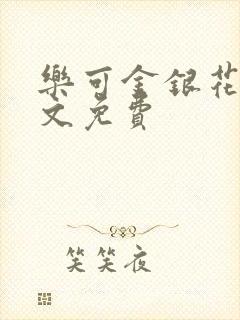 樂可金銀花
文免費
笑笑夜